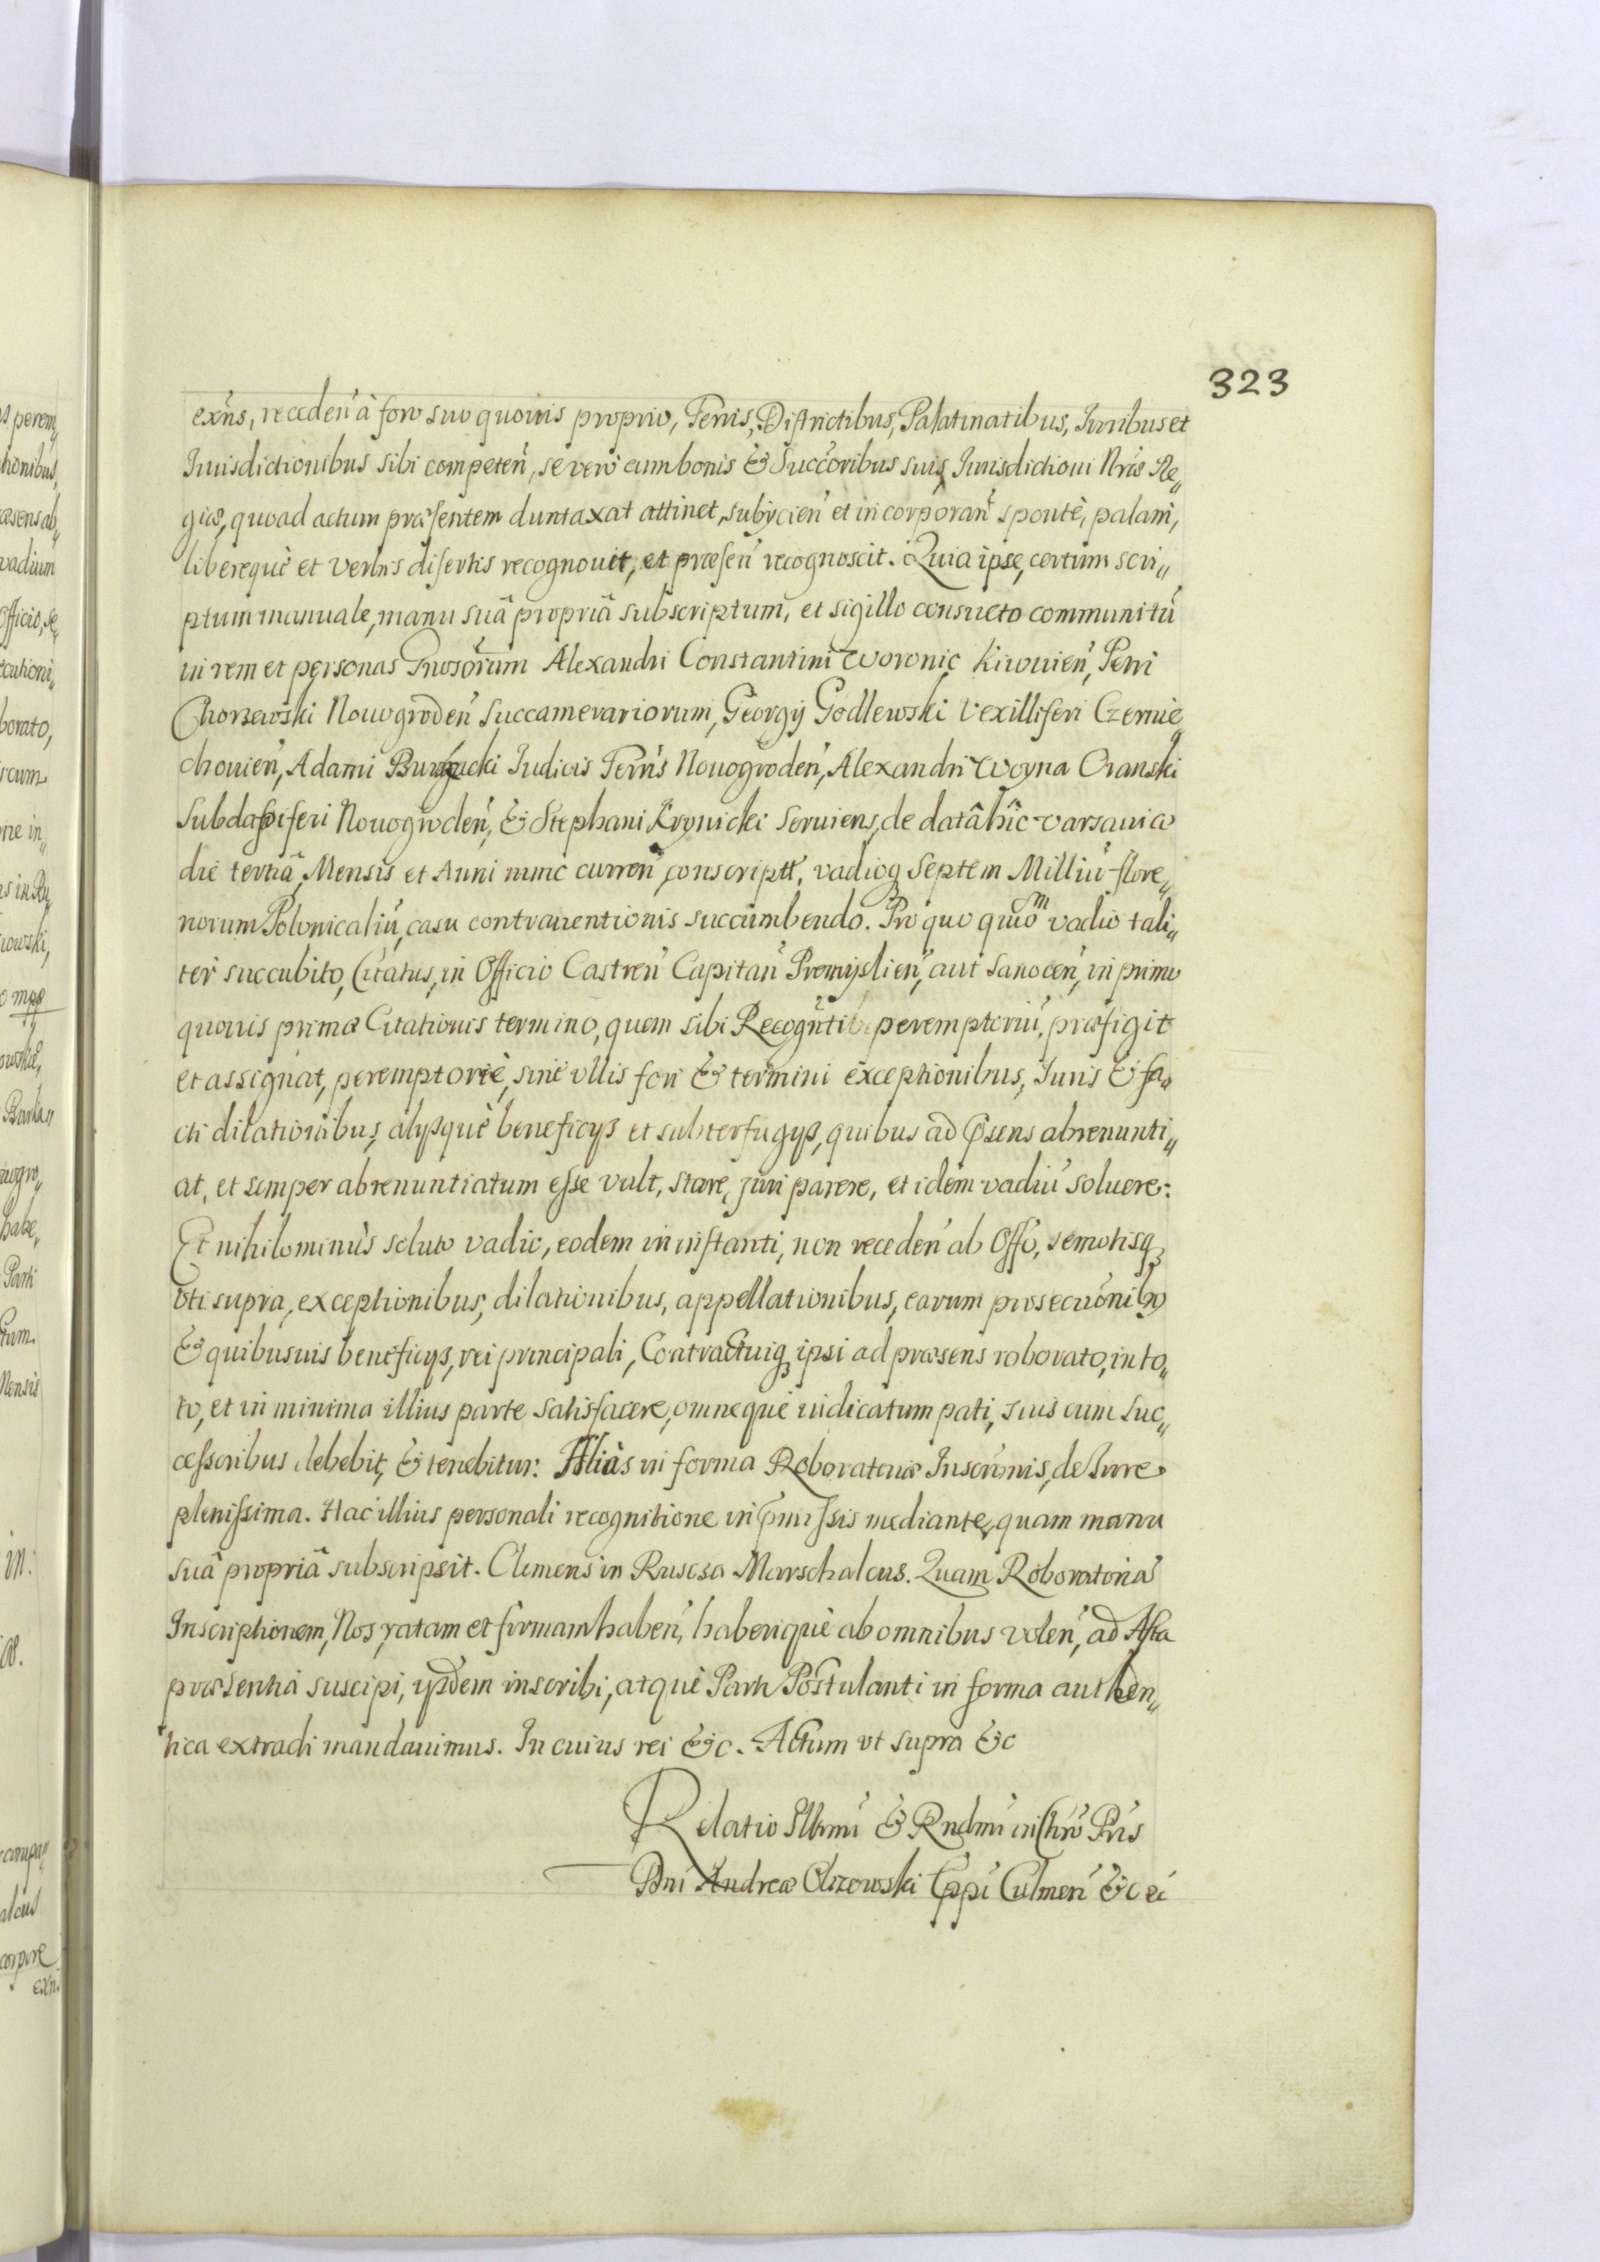 323
exñs, receden̄ à foro suo quouis proprio, Terris, Districtibus, Palatinatibus, Iuribus et
Iurisdictionibus sibi competen̄, se vero cum bonis & Succoribus suis, Iurisdictioni Nrãe Re„
giæ, quoad actum præsentem duntaxat attinet, subijcien̄ et incorporan̄ spontè, palam,
liberequè et verbis disertis recognouit, et præsen̄ recognoscit. Quia ipse, certum scri„
ptum manuale, manu suâ propriâ subscriptum, et sigillo consueto communitū
in rem et personas Gnosorum Alexandri Constantini Woronic Kiiouien̄, Petri
Chorzewski Nouogroden̄ Succamerariorum, Georgij Godlewski Vexilliferi Czernie„
chouien̄, Adami Iudicis Terrĩs Nouogroden̄, Alexandri Woyna Oranski
Subdapiferi Nouogroden̄, & Stephani Krynicki seruiens, de datâ hîc Varsauiæ
die tertiâ, Mensis et Anni nunc curren̄ conscriptū, vadioq3 Septem Milliū flore„
norum Polonicaliū, casu contrauentionis succumbendo. Pro quo quidem vadio tali„
ter succubito, Citatus, in Officio Castren̄ Capitan̄ Premyslien̄, aut Sanocen̄, in primo
quouis primæ Citationis termino, quem sibi Recogñti peremptoriū, præfigit
et assignat, peremptoriè, sine vllis fori & termini exceptionibus, Iuris & fa„
cti dilationibus, alijsquè beneficijs et subterfugijs, quibus ad p̃sens abrenunti„
at, et semper abrenuntiatum esse vult, stare, juri parere, et idem vadiū soluere:
Et nihilominùs soluto vadio, eodem in instanti, non receden̄ ab Offo, semotisq3
vti supra, exceptionibus, dilationibus, appellationibus, earum prosecuõnib9
& quibusuis beneficijs, rei principali, Contractuiq3 ipsi ad præsens roborato, in to„
to, et in minima illius parte satisfacere, omnequè iudicatum pati, suis cum suc„
cessoribus debebit, & tenebitur: Aliàs in forma Roboratoriæ Inscrip̃nis, de Iure
plenissima. Hac illius personali recognitione in p̃missis mediante, quam manu
suâ propriâ subscripsit. Clemens in Ruscsa Marschalcus. Quam Roboratoria
Inscriptionem, Nos, ratam et firmam haben̄, haberiquè ab omnibus volen̄, ad Acta
præsentia suscipi, ijsdem inscribi, atquè Parti Postulanti in forma authen„
tica extradi mandauimus. In cuius rei &c. Actum vt supra &c
Relatio Illmi & Rndmi in Chrõ Prĩs
Dni Andreæ Olszowski Eppi Culmen̄ &c &c